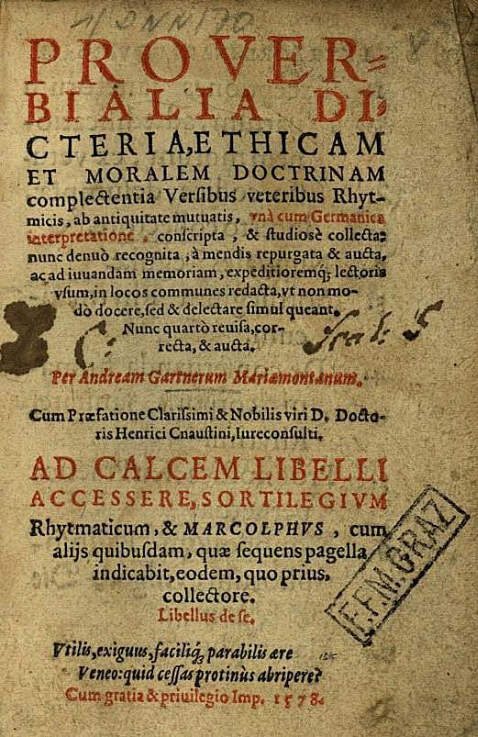 PROVER=
BIALIA DI
CTERIA, ETHICAM
ET MORALEM DOCTRINAM
complectentia Versibus veteribus Rhyt-
micis, ab antiquitate mutuatis, vnà cum Germanica
interpretatione, conscripta, & studiosè collecta:
nunc denuò recognita, à mendis repurgata & aucta,
ac ad iuuandam memoriam, expeditioremq́; lectoris
vsum, in locos communes redacta, vt non mo-
dò docere, sed & delectare simul queant.
Nunc quartò reuisa, cor-
recta, & aucta.
Per Andream Gartnerum Mariæmontanum.
Cum Præfatione Clarissimi & Nobilis viri D. Docto-
ris Henrici Cnaustini, Iureconsulti.
AD CALCEM LIBELLI
ACCESSERE, SORTILEGIVM
Rhytmaticum, & MARCOLPHVS, cum
alijs quibusdam, quæ sequens pagella
indicabit, eodem, quo prius,
collectore.
F.F.M.GRAZ
Libellus de se.
Vtilis, exiguus, faciliq́; parabilis ære
Veneo: quid cessas protinùs abripere?
Cum gratia & priuilegio Imp. 1578.